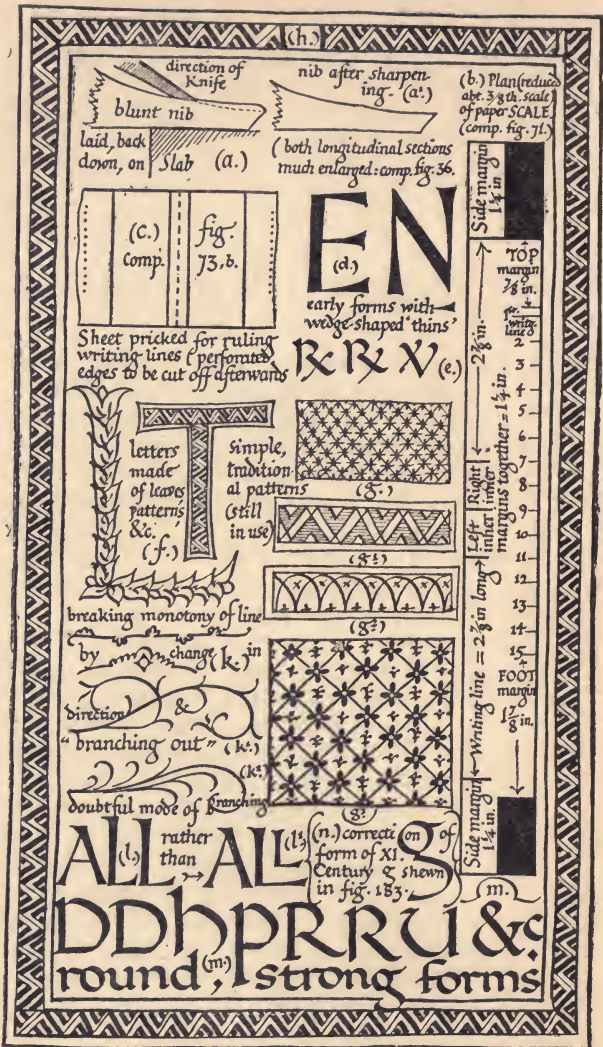 (h.)
direction of
Knife
blunt nib
laid, back
down, on
Slab (a.)
nib after sharpen-
ing. (a¹.)
(both longitudinal sections
much enlarged: comp. fig. 36.
(b.) Plan (reduced
abt. 3/8th. scale)
of paper SCALE
(comp. fig. 71.)
(c.)
comp.
fig.
73, b.
Sheet pricked for ruling
writing-lines (perforated
edges to be cut off afterwards
EN
(d.)
early forms with
wedge-shaped 'thins'
(e.)
LT
letters
made
of leaves
patterns
&c.
(f.)
simple,
tradition-
al patterns
(still
in use)
(g.)
(g¹.)
(g².)
(g³.)
breaking monotony of line
by change (k.) in
direction &
"branching out" (k¹.)
(k².)
doubtful mode of Branching
Side margin
1 1/4 in.
2 7/8 in.
Right
inner
Left
inner
margins together = 1 1/4 in.
Writing line = 2 7/8 in long
Side margin
1 1/4 in.
TOP
margin
7/8 in.
writg.
line
2
3
4
5
6
7
8
9
10
11
12
13
14
15
FOOT
margin
1 7/8 in.
ALL (l.) rather
than ALL (l¹.)
(n.) correction of
form of XI.
Century g shewn
in fig. 183.
g
(m.)
DDhPRRU &c.
round, (m.) strong forms